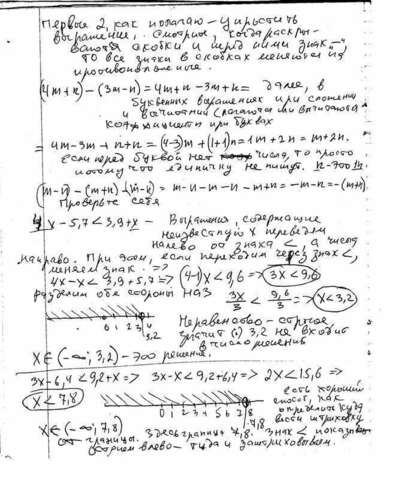 Первые 2, как полагаю – упростить
выражение. Смотрим, когда раскры-
ваются скобки и перед ними знак „–",
то все знаки в скобках меняются на
противоположные.
(4m+n) – (3m–n) = 4m+n–3m+n = далее, в
буквенных выражениях при сложении
и вычитании слагаются или вычитаются
коэффициенты при буквах
= 4m–3m+n+n = (4–3)m + (1+1)n = 1m+2n = m+2n.
если перед буквой нет числа, то просто
потому что единичку не пишут. n – это 1n.
(m–n) – (m+n) – (m–n) = m–n–m–n–m+n = –m–n = –(m+n).
Проверьте себя
4x – 5,7 < 3,9 + x – Выражения, содержащие
неизвестную x переведём
налево от знака <, а числа
направо. При этом, если переходим через знак <,
меняем знак. =>
4x – x < 3,9 + 5,7 => (4–1)x < 9,6 => 3x < 9,6
разделим обе стороны на 3 3x/3 < 9,6/3 => x < 3,2
0 1 2 3 4
3,2
Неравенство – строгое
значит (·) 3,2 не входит
в число решений
x ∈ (–∞; 3,2) – это решение.
3x – 6,4 < 9,2 + x => 3x – x < 9,2 + 6,4 => 2x < 15,6 =>
x < 7,8
0 1 2 3 4 5 6 7 8
7,8
есть хороший
способ, как
определить куда
вести штриховку
x ∈ (–∞; 7,8) здесь граница 7,8. знак < показыв
от границы влево – туда и заштриховываем.